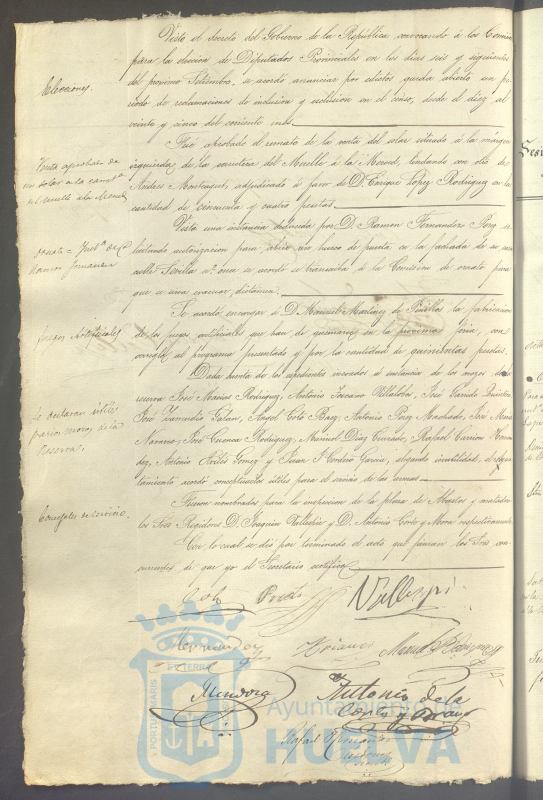 Visto el decreto del Gobierno de la República, convocando á los Comicios
para la elección de Diputados Provinciales en los días seis y siguientes
Elecciones.
del próximo Setiembre, se acordó anunciar por edictos queda abierto un pe-
ríodo de reclamaciones de inclusion y esclusion en el censo, desde el diez al
veinte y cinco del corriente mes.
Fué aprobado el remate de la venta del solar situado á la márgen
Venta aprobada de
un solar a la carretera
del Muelle á la Merced
izquierda de la carretera del Muelle á la Merced, lindando con otro de
Andres Montenegro, adjudicado á favor de D. Enrique Lopez Rodriguez en la
cantidad de cincuenta y cuatro pesetas.
Vista una instancia deducida por D. Ramon Fernandez Perez so-
licitando autorizacion para abrir un hueco de puerta en la fachada de su casa
calle Sevilla nº once se acordó se transcriba á la Comision de ornato para
que se sirva evacuar dictámen.
Se acordó encargar á D. Manuel Martinez de Pinillos la fabricacion
fuegos Artificiales
de los fuegos artificiales que han de quemarse en la próxima feria, con
arreglo al programa presentado y por la cantidad de quinientas pesetas.
Dada cuenta de los espedientes incoados á instancia de los mozos de la
reserva José Macías Rodriguez, Antonio Toscano Villalobo, José Garrido Quintero
Se declaran útiles
varios mozos de la
Reserva.
José Zamudio Galan, Angel Cotó Baez, Antonio Perez Machado, José Mora
Navarro, José Cuenca Rodriguez, Manuel Diaz Cruzado, Rafael Carrion Hernan-
dez, Antonio Avilés Gomez y Juan J. Cordero Garcia, alegando inutilidad, el Ayun-
tamiento acordó conceptuarlos útiles para el servicio de las armas.
Concejales de servicio.
Fueron nombrados para la inspeccion de la plaza de Abastos y matadero
los Sres Regidores D. Joaquin Vallespin y D. Antonio Corte y Mora respectivamente.
Con lo cual se dió por terminado el acto que firman los Sres con-
currentes de que yo el Secretario certifico
Coto
Vallespin
Hernandez
Manuel
Mendoza
Antonio de la
Corte y
Rafael
PORTUS MARIS
ET TERRÆ
Ayuntamiento de
HUELVA